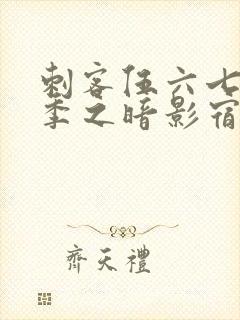 刺客伍六七
季之暗影宿
齊天禮